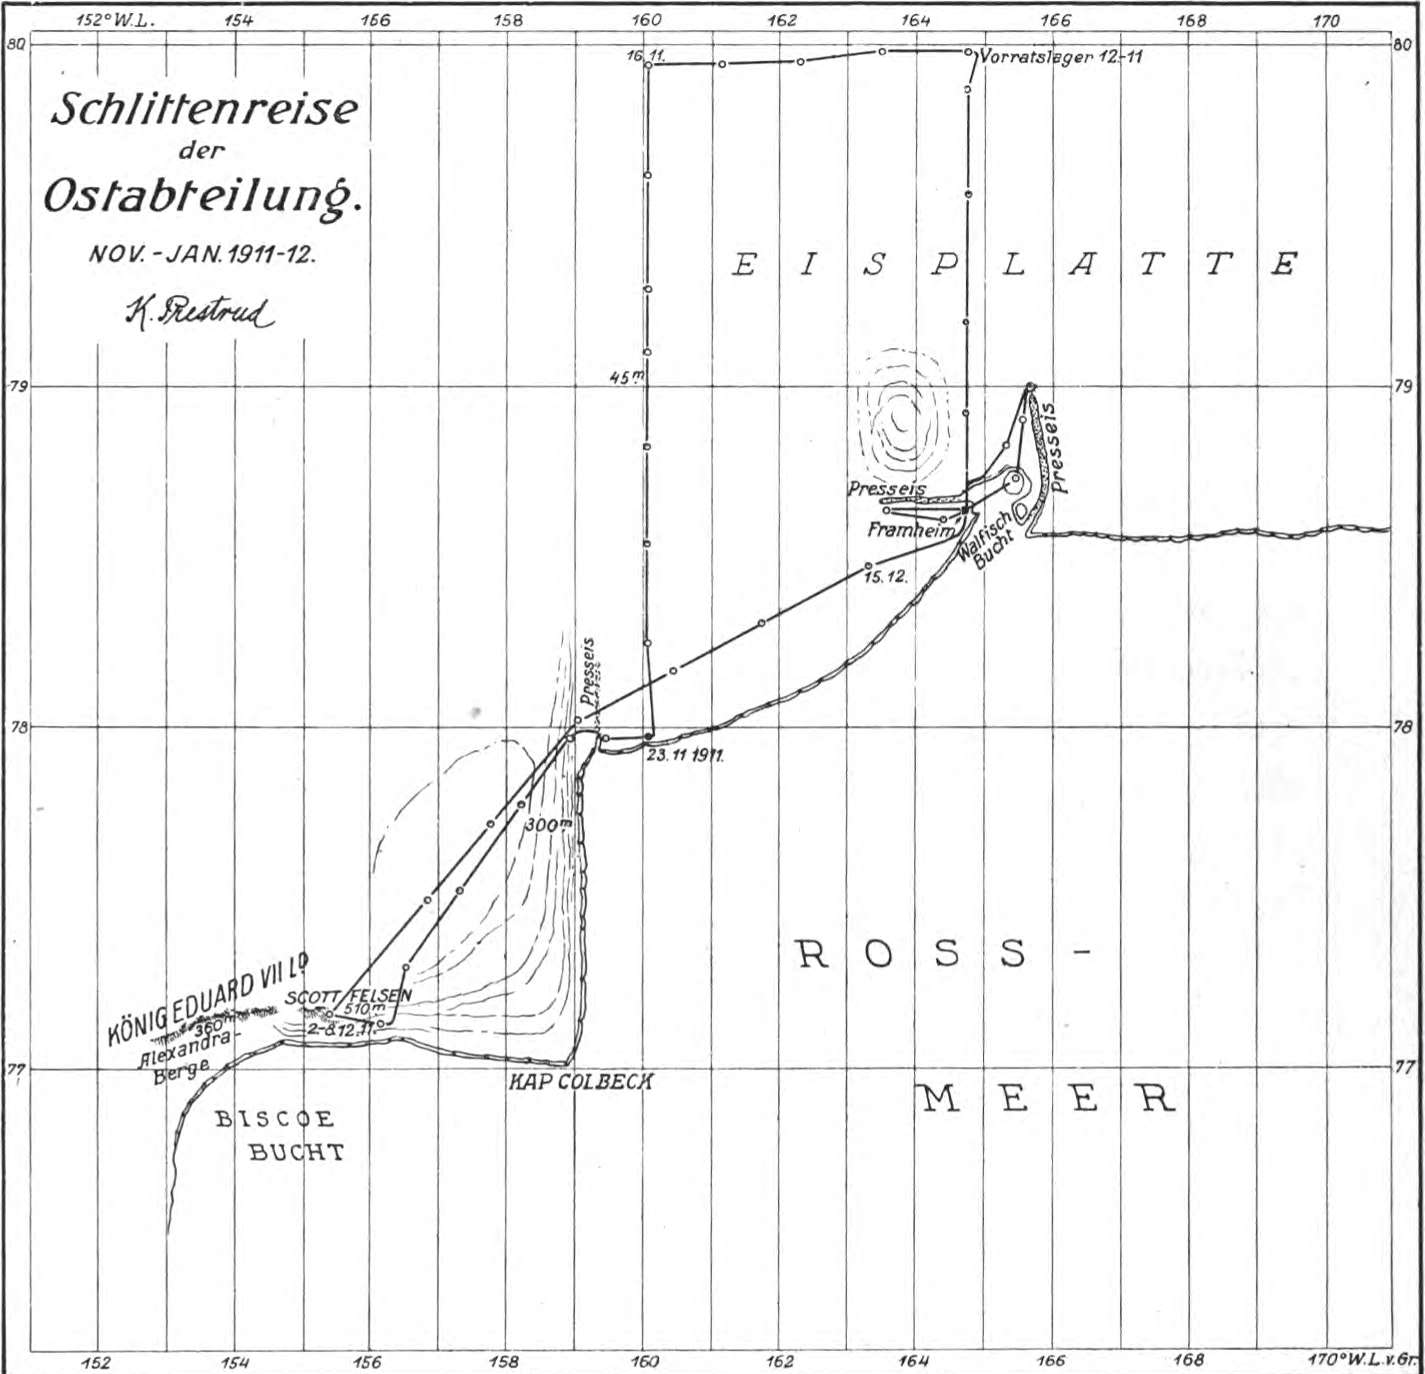 152° W.L. 154 166 158 160 162 164 166 168 170
80 80
16.11.
Vorratslager 12-11
Schlittenreise
der
Ostabteilung.
NOV.-JAN. 1911-12.
K. Prestrud
EISPLATTE
79 79
45 m
Presseis
Presseis
Framheim
Walfisch
Bucht
15.12.
Presseis
78 78
23.11 1911.
300 m
ROSS-
MEER
KÖNIG EDUARD VII LD
SCOTT FELSEN
510 m
360 m
2-8.12.11.
Alexandra-
Berge
77 77
KAP COLBECK
BISCOE
BUCHT
152 154 156 158 160 162 164 166 168 170° W.L.v.Gr.